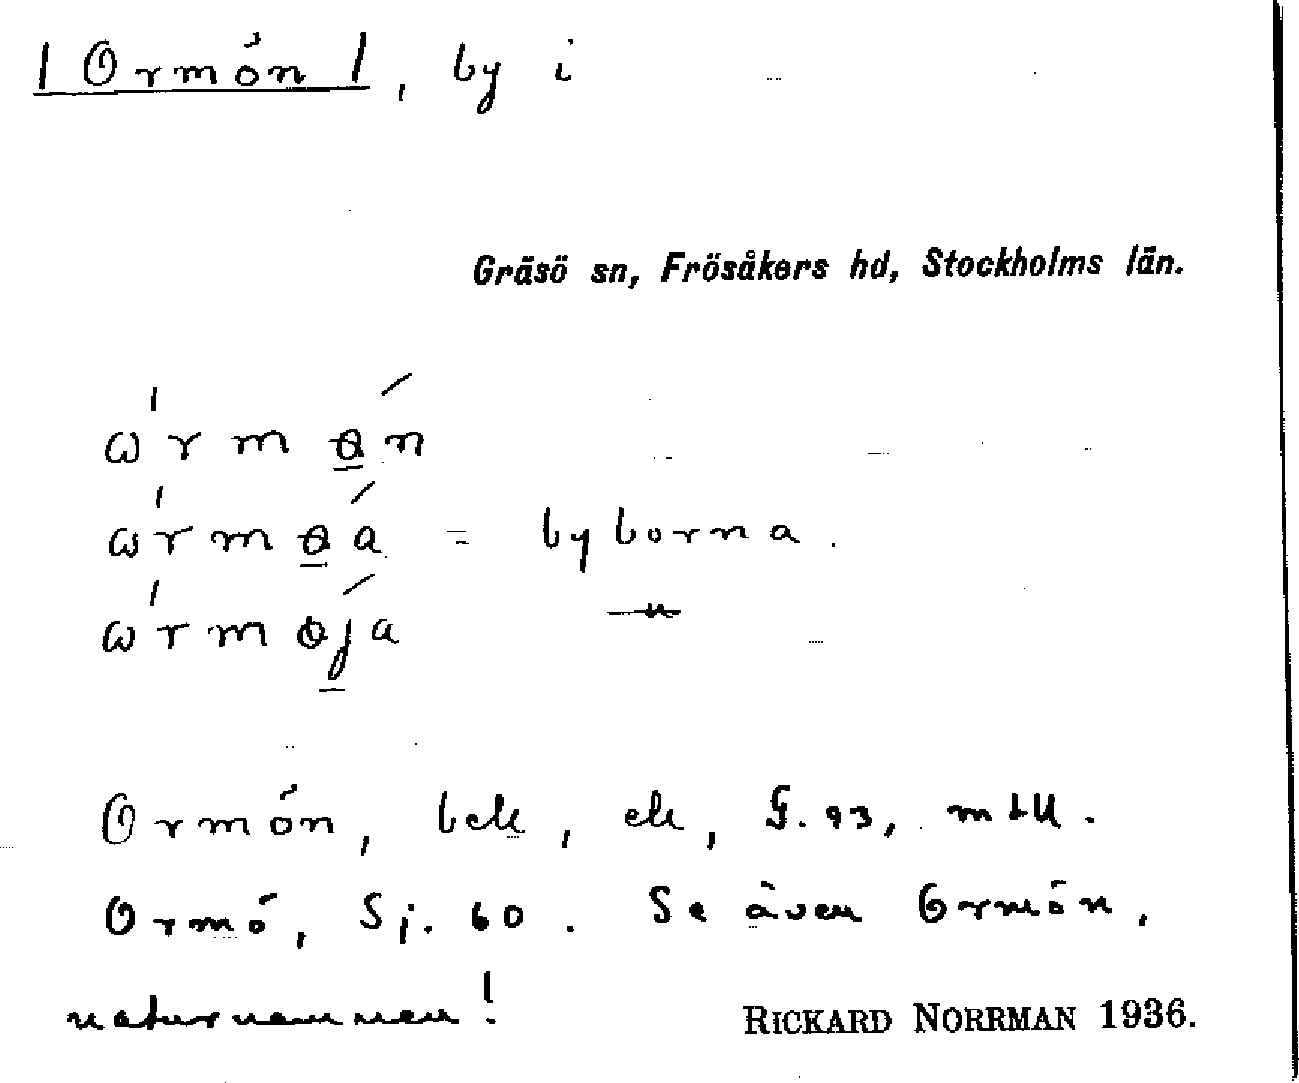 | Ormön |, by i
Gräsö sn, Frösåkers hd, Stockholms län.
= byborna.
— " —
Ormön, bek, ek, G. 93,
Ormö, Sj. 60. Se även Ormön,
naturnamnen!
RICKARD NORRMAN 1936.